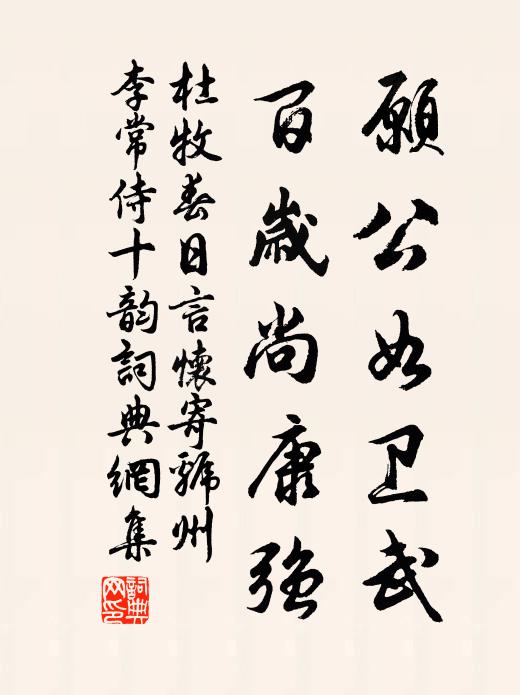 願公如卫武
百歲尚康強
杜牧春日言懷寄虢州
李常侍十韵詞典網集
詞典网印